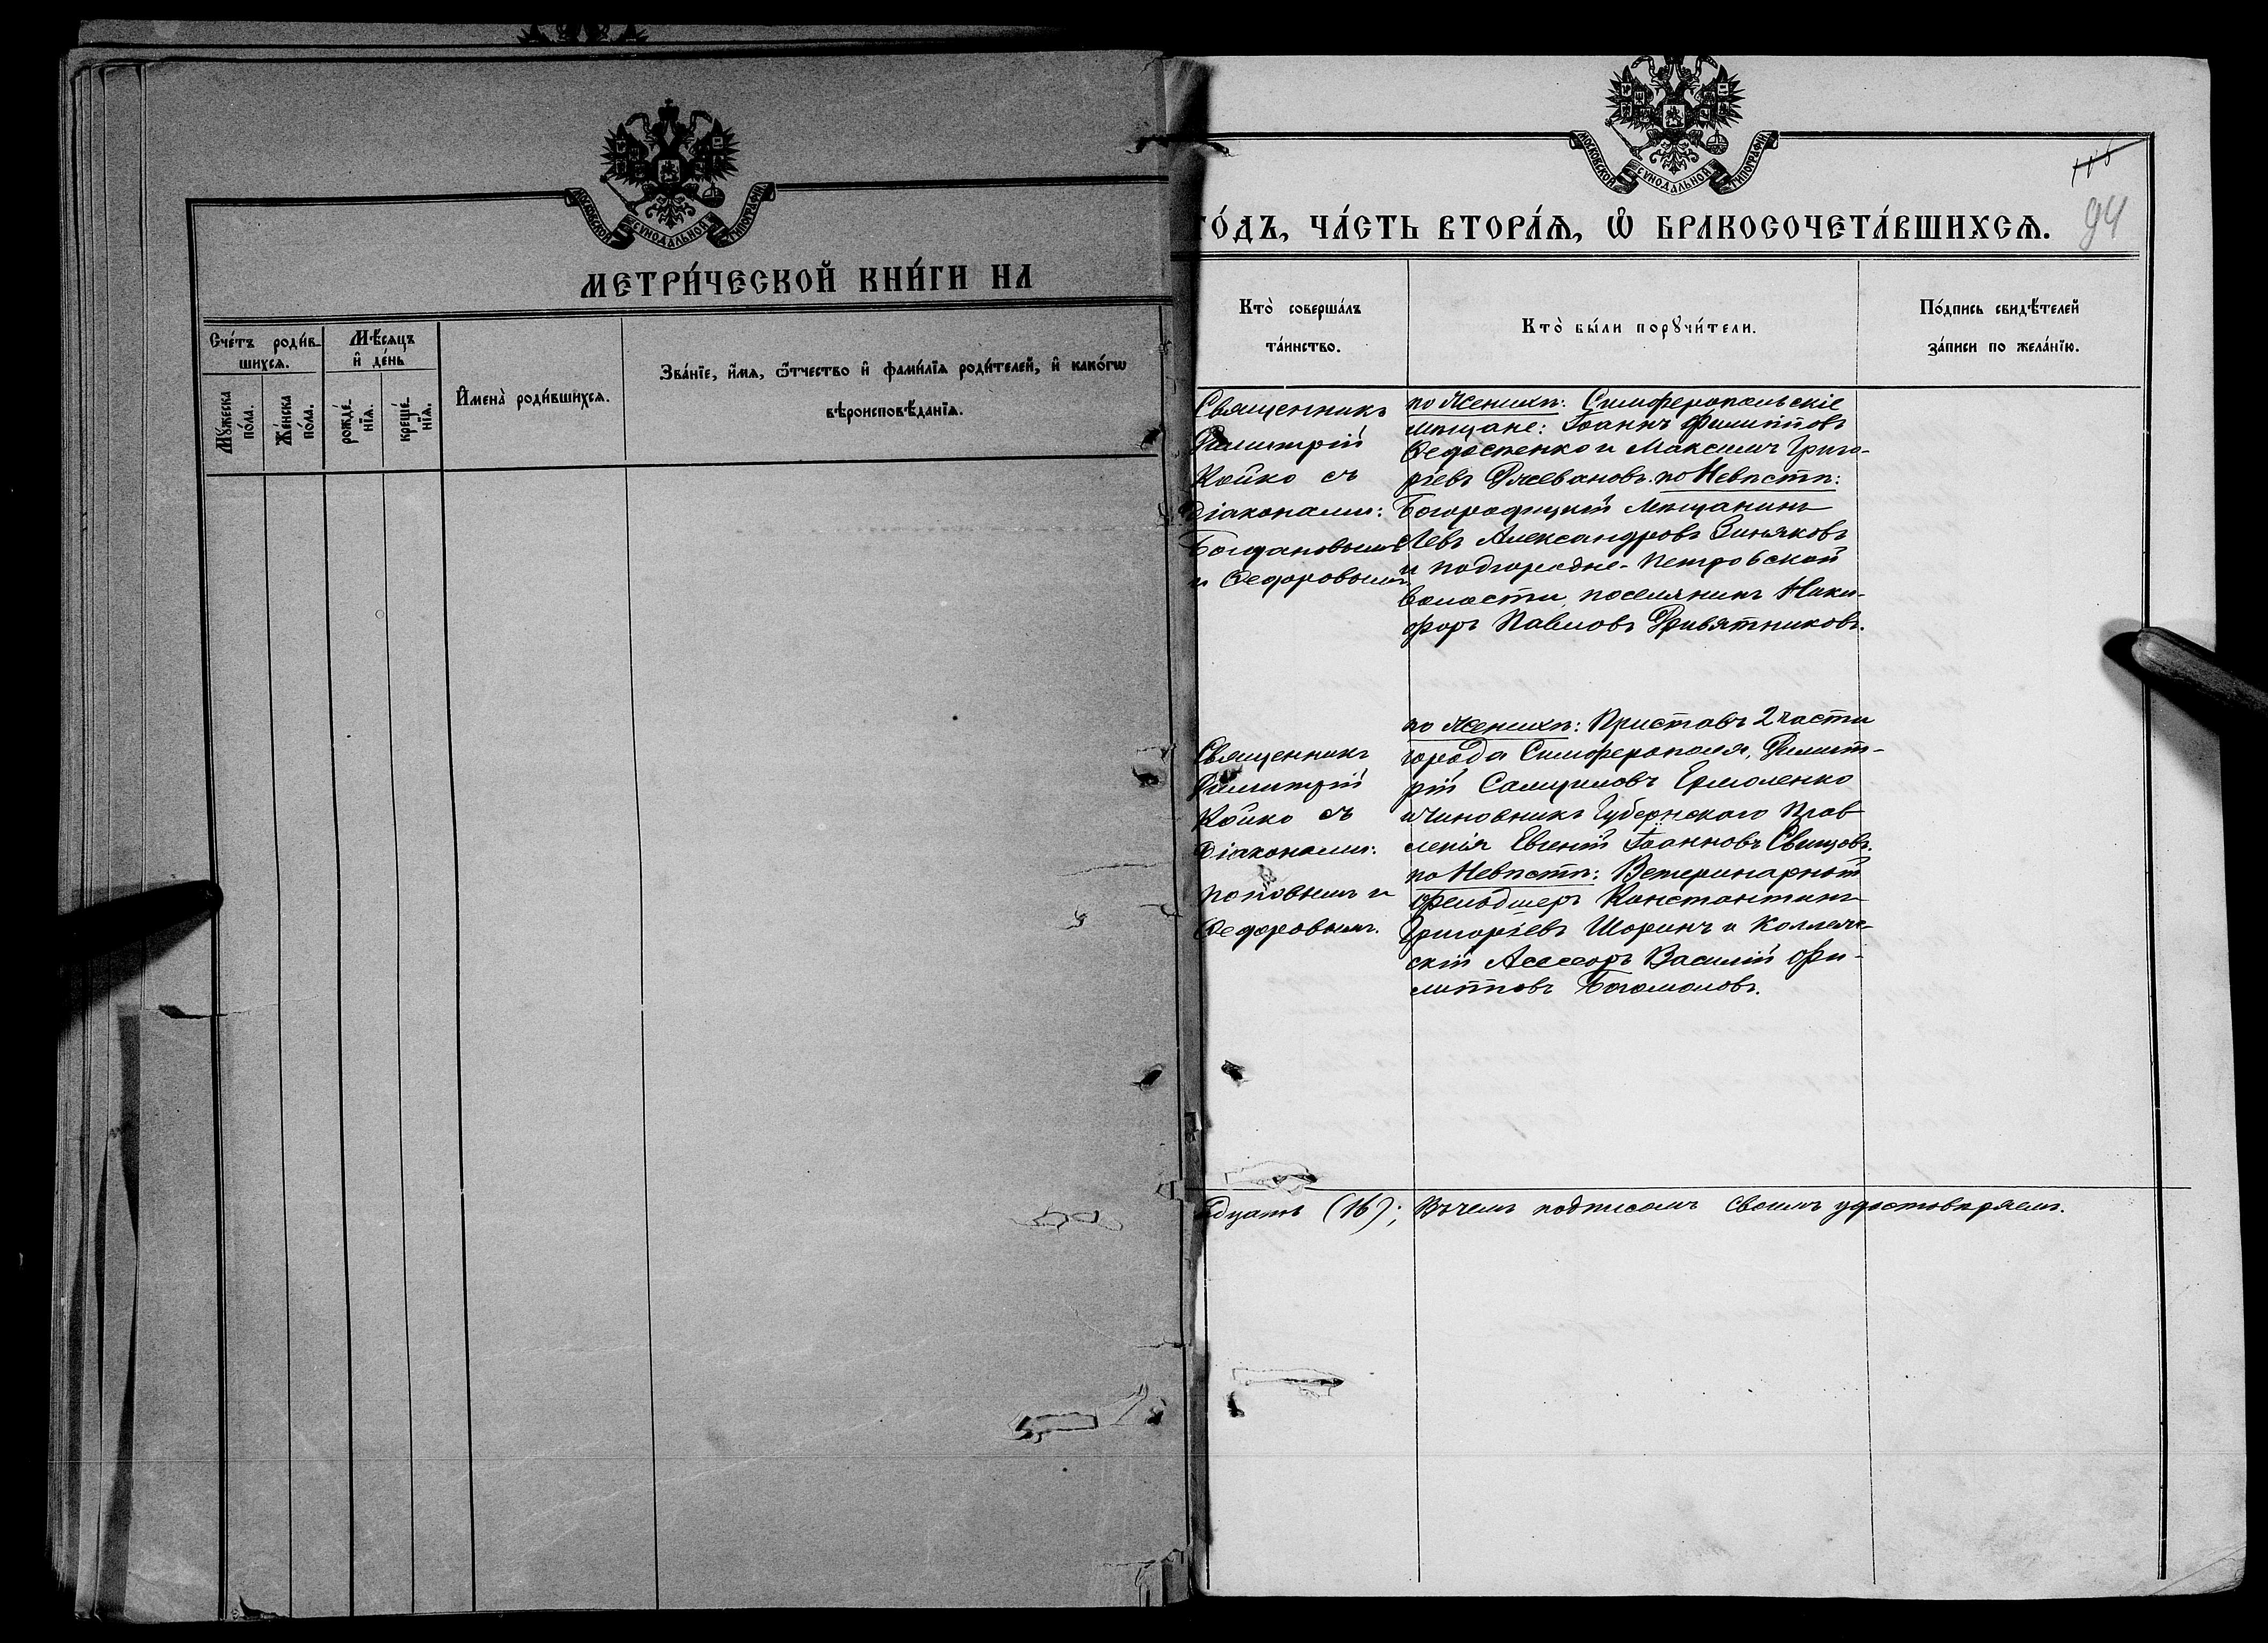 МОСКОВСКОЙ СѴНОДАЛЬНОЙ ТИПОГРАФІИ
МЕТРИ́ЧЕСКОЙ КНИ́ГИ НА
Сче́тъ роди́в-
шихся.
Мѣ́сяцъ
и҆ де́нь
Мꙋ́жеска
по́ла.
Же́нска
по́ла.
рожде́-
нїя.
креще́-
нїя.
И҆мена̀ роди́вшихся.
Зва́нїе, и҆́мя, ѻ҆́тчество и҆ фами́лїя роди́телей, и҆ како́гѡ
вѣроисповѣ́данїя.
МОСКОВСКОЙ СѴНОДАЛЬНОЙ ТИПОГРАФІИ
ГО́ДЪ, ЧА́СТЬ ВТОРА́Я, Ѡ҆ БРАКОСОЧЕТА́ВШИХСЯ.
94
Кто̀ соверша́лъ
та́инство.
Кто̀ бы́ли порꙋчи́тели.
По́дпись свидѣ́телей
за́писи по жела́нїю.
Священникъ
Димитрій
Койко съ
Діаконами:
Богдановымъ
и Федоровымъ
по Женихѣ: Симферопольскіе
мѣщане: Іоаннъ Филипповъ
Федосенко и Максимъ Григо-
рьевъ по Невѣстѣ:
Богородицкій мѣщанинъ
Левъ Александровъ Зиняковъ
и Подгородне-Петровской
волости, поселянинъ Ники-
форъ Павловъ Дивятниковъ.
Священникъ
Димитрій
Койко съ
Діаконами:
Поповымъ и
Федоровымъ.
по Женихѣ: Приставъ 2 части
города Симферополя, Димит-
рій Самуиловъ Ермоленко
и Чиновникъ Губернскаго Прав
ленія Евгеній Іоанновъ Свищовъ.
по Невѣстѣ: Ветеринарный
фельдшеръ Константинъ
Григорьевъ Шоринъ и Коллеж-
скій Ассесоръ Василій Фи-
липповъ Богомоловъ.
дцать (16); Въ чемъ подписомъ своимъ удостовѣряемъ.